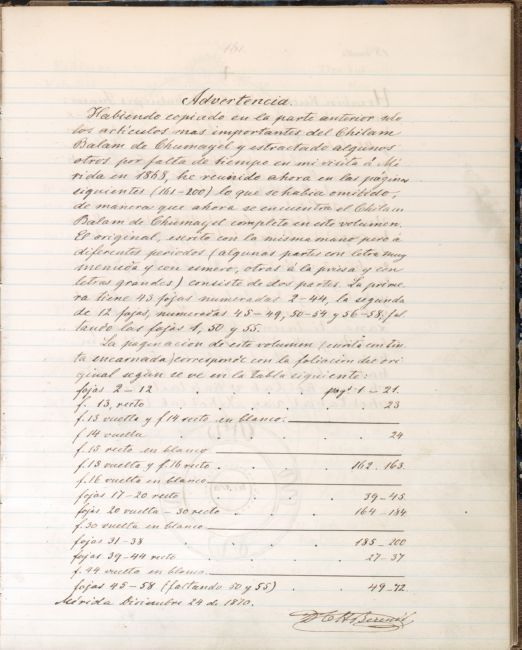 Advertencia.
Habiendo copiado en la parte anterior solo
los articulos mas importantes del Chilam
Balam de Chumayel y estractado algunos
otros por falta de tiempo en mi visita á Mé
rida en 1868, he reunido ahora en las páginas
siguientes (161-200) lo que se habia omitido,
de manera que ahora se encuentra el Chilam
Balam de Chumayel completo en este volumen.
El original, escrito con la misma mano pero á
diferentes periodos (algunas partes con letra muy
menuda y con esmero, otras á la prisa y con
letras grandes) consiste de dos partes. La prime
ra tiene 43 fojas numeradas 2-44, la segunda
de 12 fojas, numeradas 45-49, 50-54 y 56-58, fal
tando las fojas 1, 50 y 55.
La paginacion de este volumen (escrita con tin
ta encarnada) corresponde con la foliacion del ori
ginal segun se ve en la tabla siguiente:
fojas 2-12 pag. 1-21.
f. 13, recto . . . 23
f. 13 vuelta y f 14 recto en blanco.
f 14 vuelta . . . 24
f. 15 recto en blanco
f. 15 vuelta y f. 16 recto . . . 162. 163.
f. 16 vuelta en blanco
fojas 17-20 recto . . . 39-45
fojas 20 vuelta - 30 recto . . 164-184
f. 30 vuelta en blanco
fojas 31-38 . . . 185-200
fojas 39-44 recto . . . 27-37
f. 44 vuelta en blanco
fojas 45-58 (faltando 50 y 55) . 49-72.
Mérida Diciembre 24 de 1870.
D. C. H. Berendt